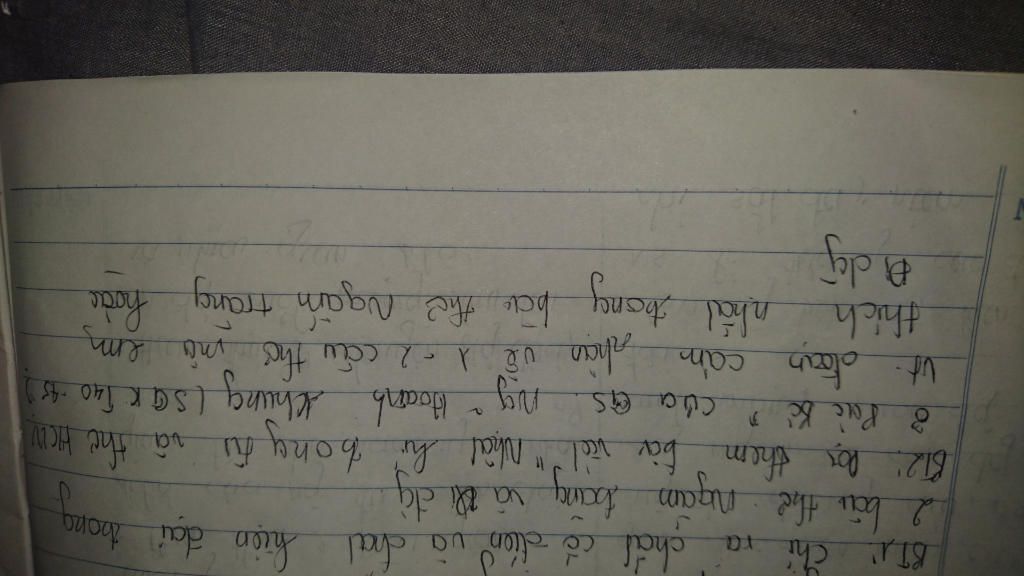 BT1: Chỉ ra chất cổ điển và chất hiện đại trong
2 bài thơ Ngắm trăng và Đi đg
BT2: Đọc thêm bài viết "Nhật kí trong tù và thơ HCM
ở Pác Bó" của GS. Ng~ Hoành Khung (SGK T40-45)
Vt đoạn cảm nhận về 1-2 câu thơ mà em
thích nhất trong bài thơ Ngắm trăng hoặc
Đi đg